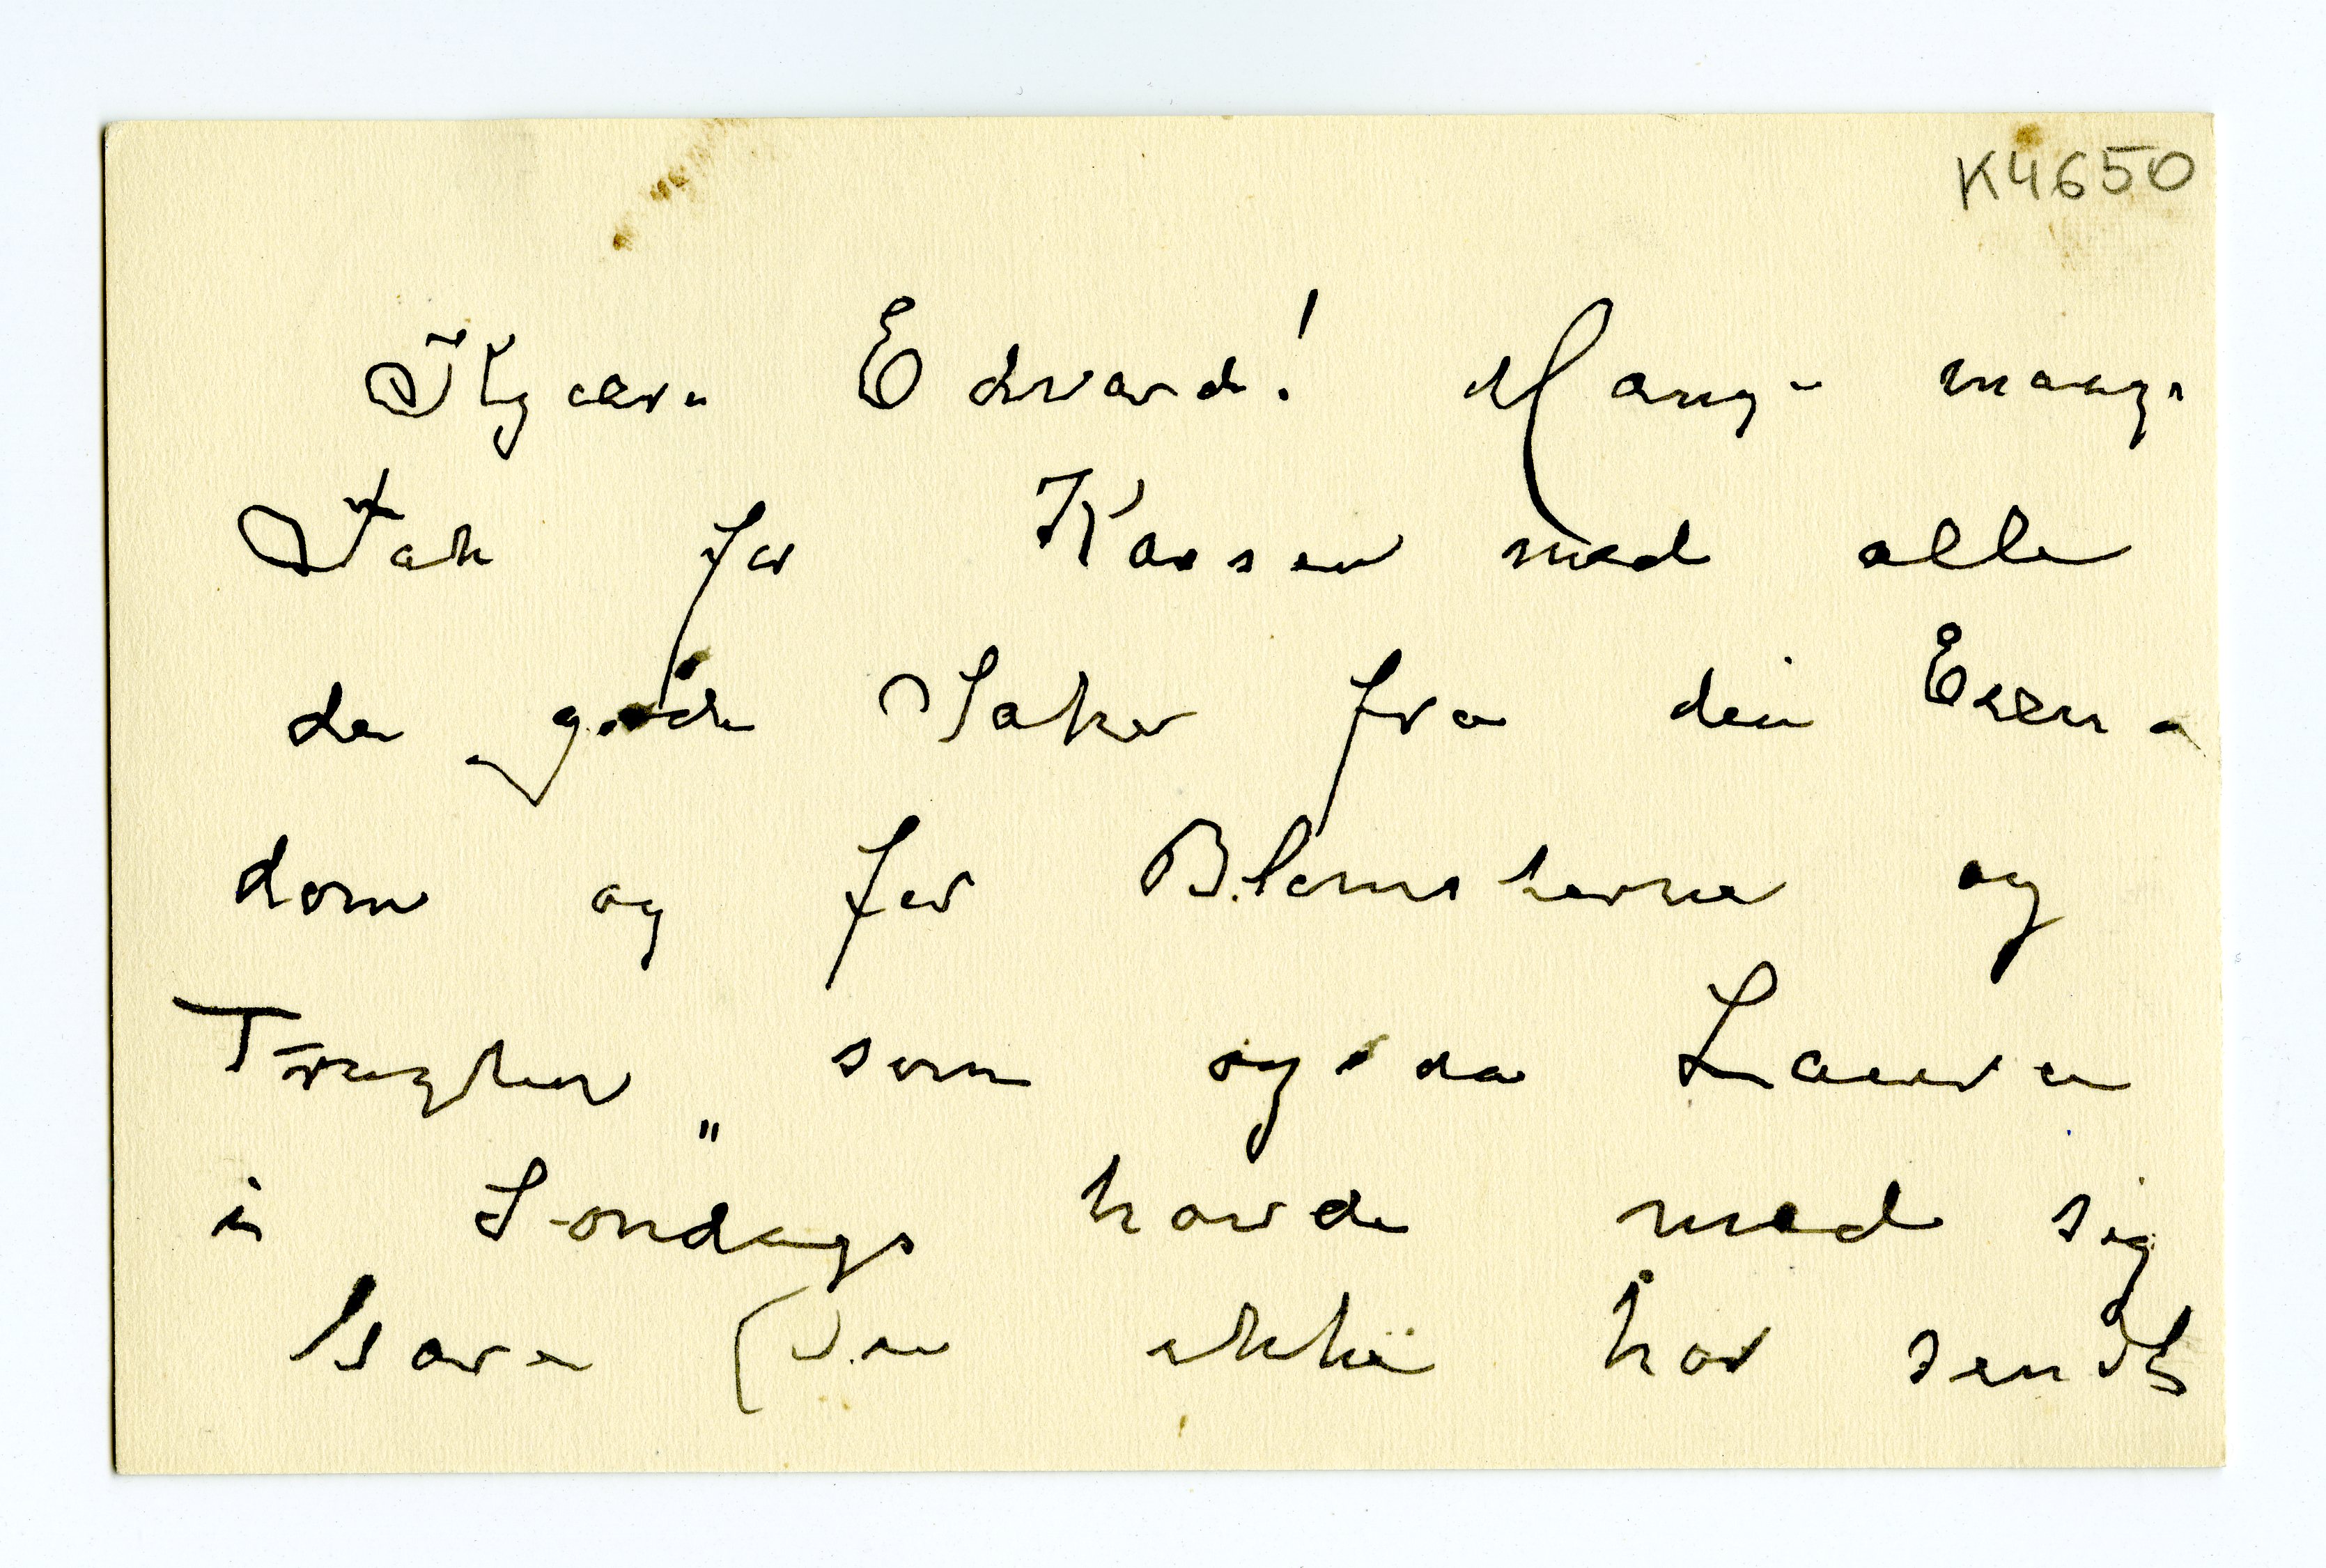 K4650
Kjære Edvard! Mange mange
Tak for Kassen med alle
de gode Saker fra din Eien-
dom og for Blomsterne og
Frugten som ogsaa Laura
i Søndags havde med sig
bare Du ikke har sendt